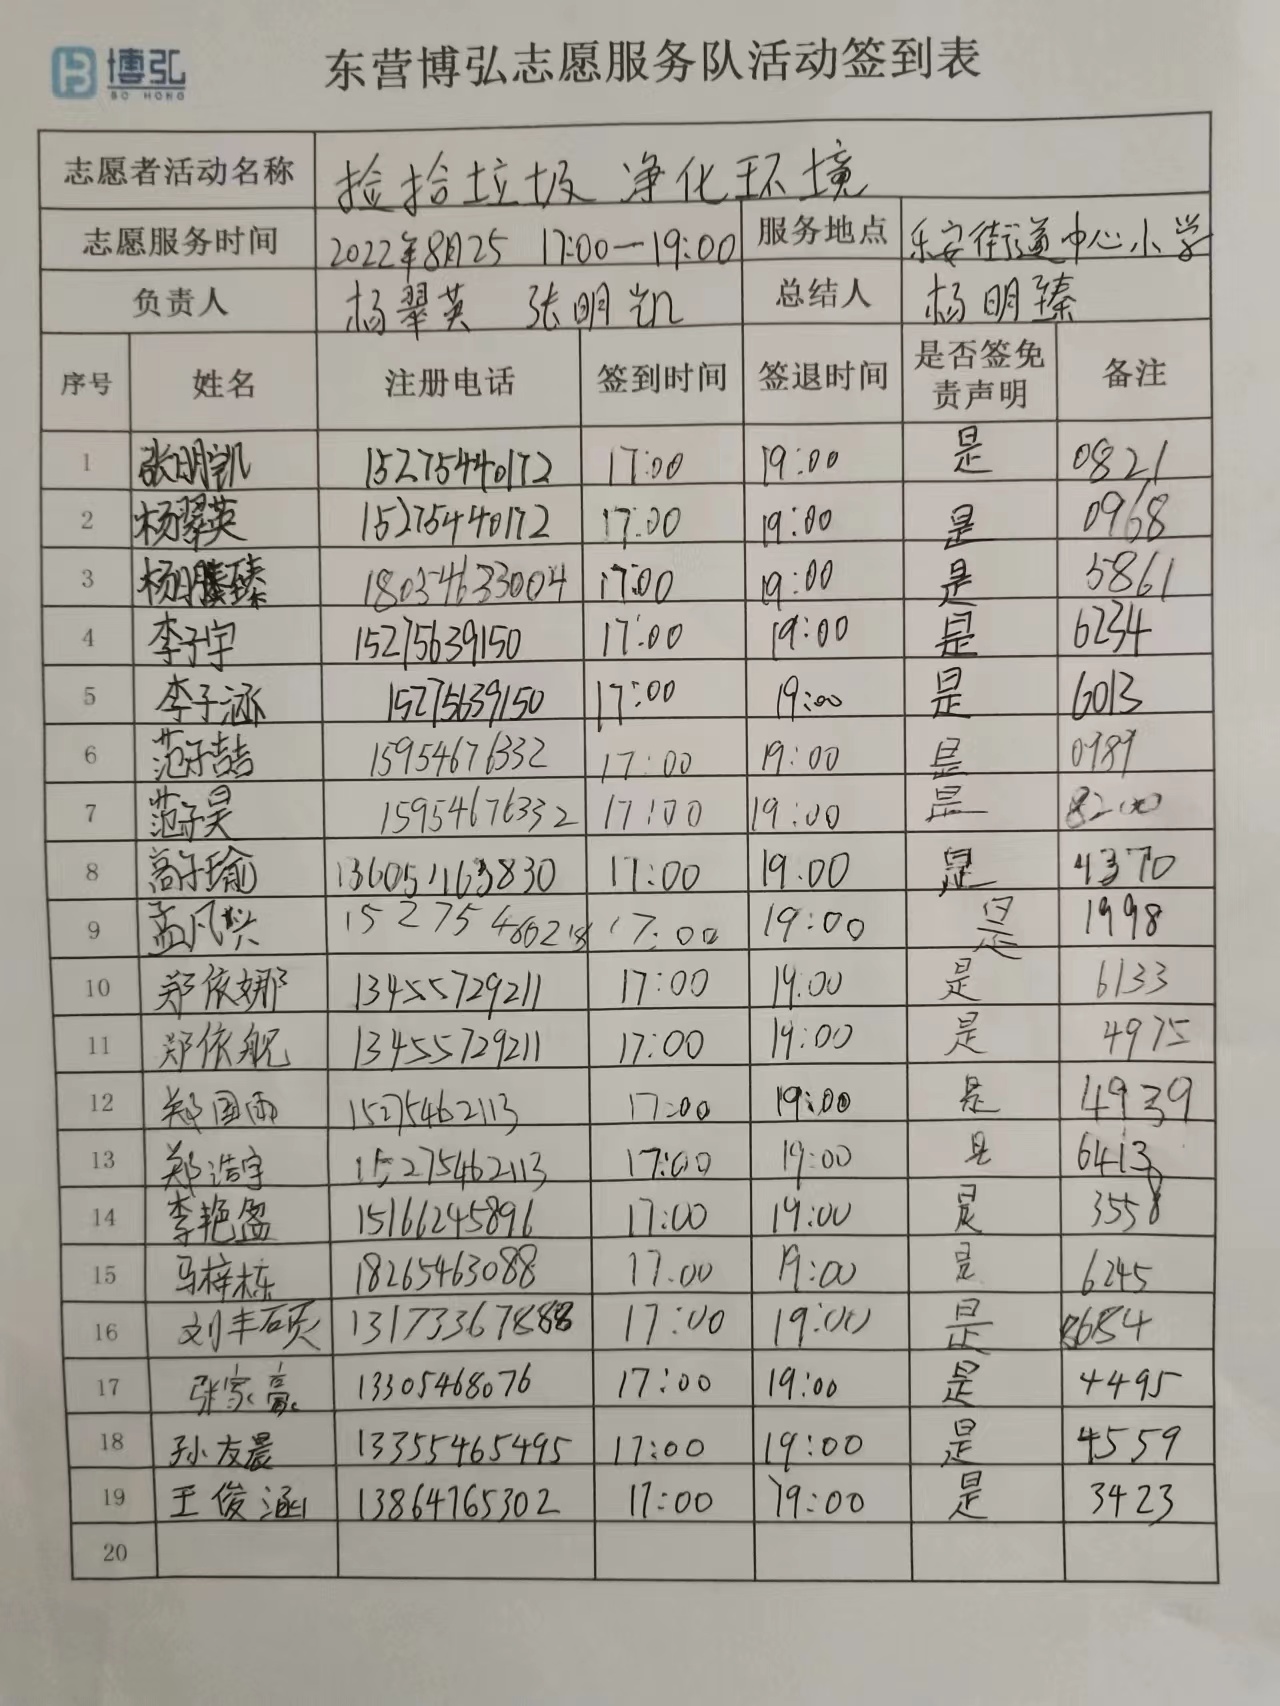 博弘
BO HONG
东营博弘志愿服务队活动签到表
志愿者活动名称 捡拾垃圾 净化环境
志愿服务时间 2022年8月25 17:00—19:00 服务地点 乐安街道中心小学
负责人 杨翠英 张明凯 总结人 杨明臻
序号 姓名 注册电话 签到时间 签退时间 是否签免责声明 备注
1 张明凯 15275440172 17:00 19:00 是 0821
2 杨翠英 15275440172 17:00 19:00 是 0968
3 杨明臻 18054633004 17:00 19:00 是 5861
4 李子宇 15275639150 17:00 19:00 是 6234
5 李子涵 15275639150 17:00 19:00 是 6013
6 范子喆 15954676332 17:00 19:00 是 0989
7 范子昊 15954676332 17:00 19:00 是
8 高子瑜 17:00 19:00 是 4370
9 孟凡兴 17:00 19:00 是 1998
10 郑依娜 13455729211 17:00 19:00 是 6133
11 郑依舰 13455729211 17:00 19:00 是 4975
12 郑国雨 15275462113 17:00 19:00 是 4939
13 郑浩宇 15275462113 17:00 19:00 是 6413
14 李艳盈 15166245896 17:00 19:00 是 3558
15 马梓栋 18265463088 17:00 19:00 是 6245
16 刘丰硕 13173367888 17:00 19:00 是 8684
17 张家豪 13305468076 17:00 19:00 是 4495
18 孙友晨 13355465495 17:00 19:00 是 4559
19 王俊涵 13864765302 17:00 19:00 是 3423
20